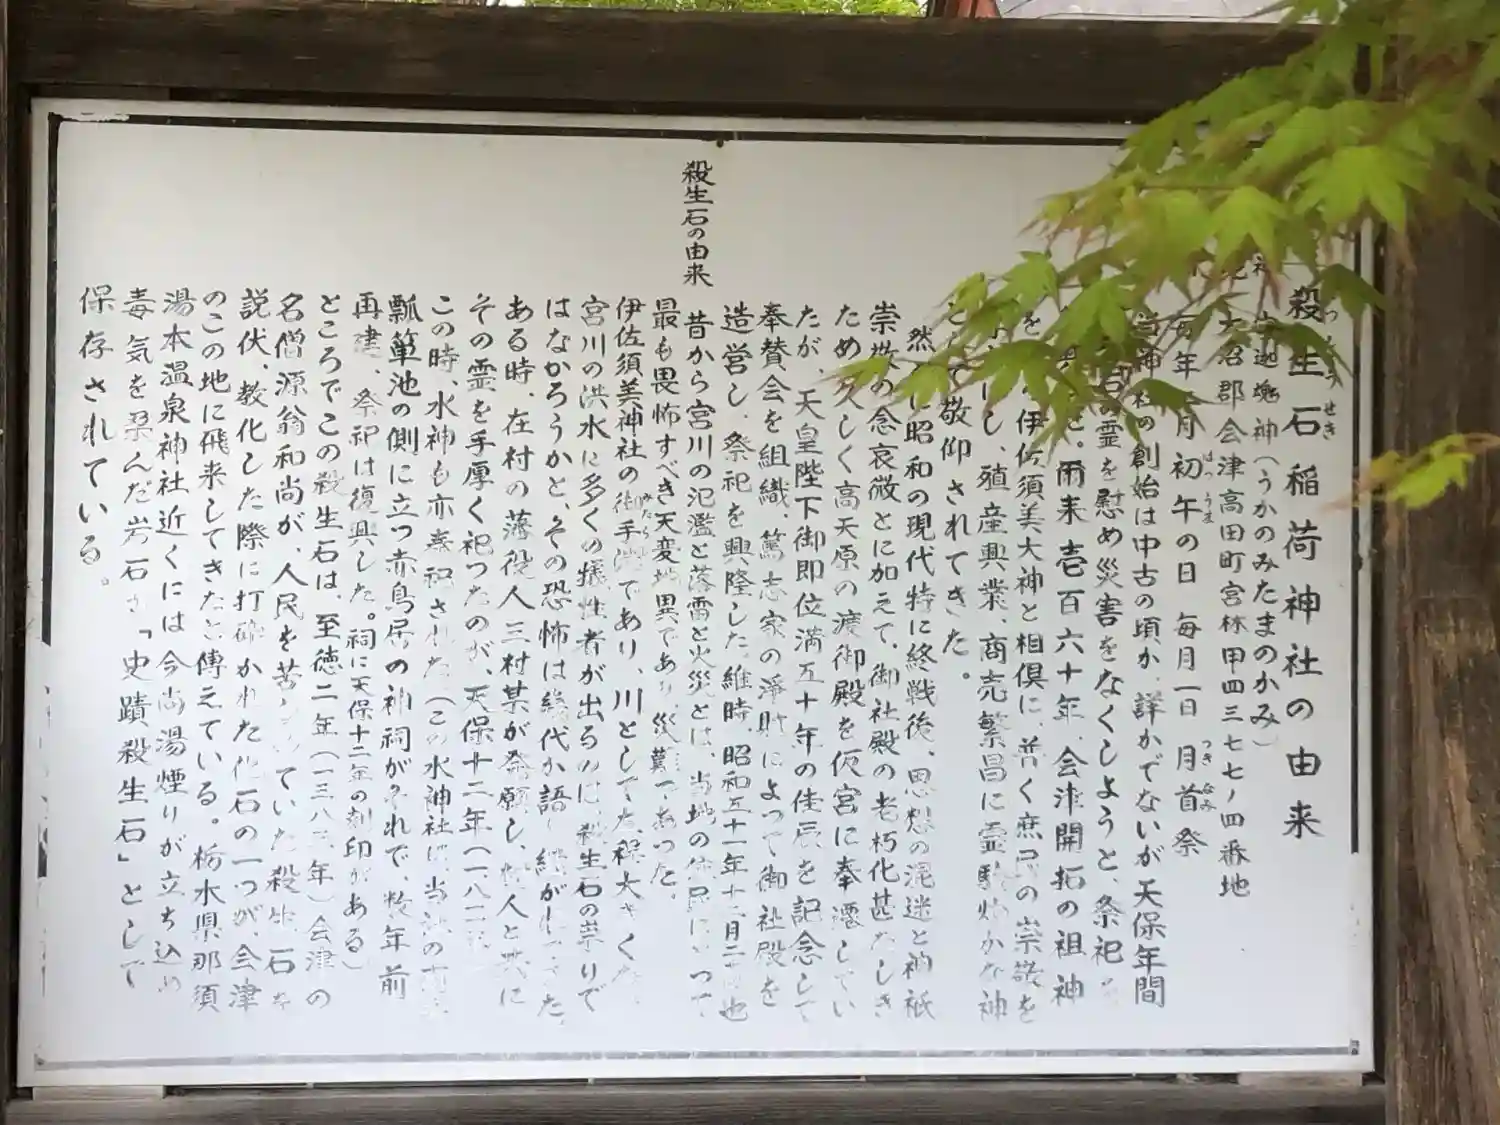 殺生石稲荷神社の由来
せっしょうせき
宇迦魂神(うかのみたまのかみ)
大沼郡会津高田町宮林甲四三七七ノ四番地
毎年 月初午の日 毎月一日 月首祭
はつうま
つきなみ
神社の創始は中古の頃か、詳かでないが天保年間
の霊を慰め災害をなくしようと、祭祀
爾来壱百六十年、会津開拓の祖神
伊佐須美大神と相倶に、普く庶民の崇敬を
し、殖産興業、商売繁昌に霊験 かな神
て敬仰されてきた。
然 に昭和の現代特に終戦後、思想の混迷と神祇
崇敬の念衰微とに加えて、御社殿の老朽化甚だしき
ため久しく高天原の渡御殿を仮宮に奉遷してい
たが、天皇陛下御即位満五十年の佳辰を記念して
奉賛会を組織、篤志家の浄財によって御社殿を
造営し、祭祀を興隆した。維時、昭和五十一年十二月二 也
殺生石の由来
昔から宮川の氾濫と落雷と火災とは、当地の住民にとって
最も畏怖すべき天変地異であり、災難 あった。
伊佐須美神社の御手洗であり、川としてた程大きくな
みたら
宮川の洪水に多くの犠牲者が出るのは、殺生石の祟りで
はなかろうかと、その恐怖は幾代か語り継がれてきた。
ある時、在村の藩役人三村某が発願し、 人と共に
その霊を手厚く祀ったのが、天保十二年(一八
この時、水神も亦奉祀された(この水神社は、当 の
瓢箪池の側に立つ赤鳥居の神祠がそれで、数年前
再建、祭祀は復興した。祠に天保十二年の刻印がある)
ところでこの殺生石は、至徳二年(一三八 年)会津の
名僧源翁和尚が、人民を苦 ていた殺生石を
説伏、教化した際に打砕かれた化石の一つが、会津
のこの地に飛来してきたと傳えている。栃木県那須
湯本温泉神社近くには今尚湯煙りが立ち込め
毒気を孕んだ岩石が「史蹟殺生石」として
保存されている。